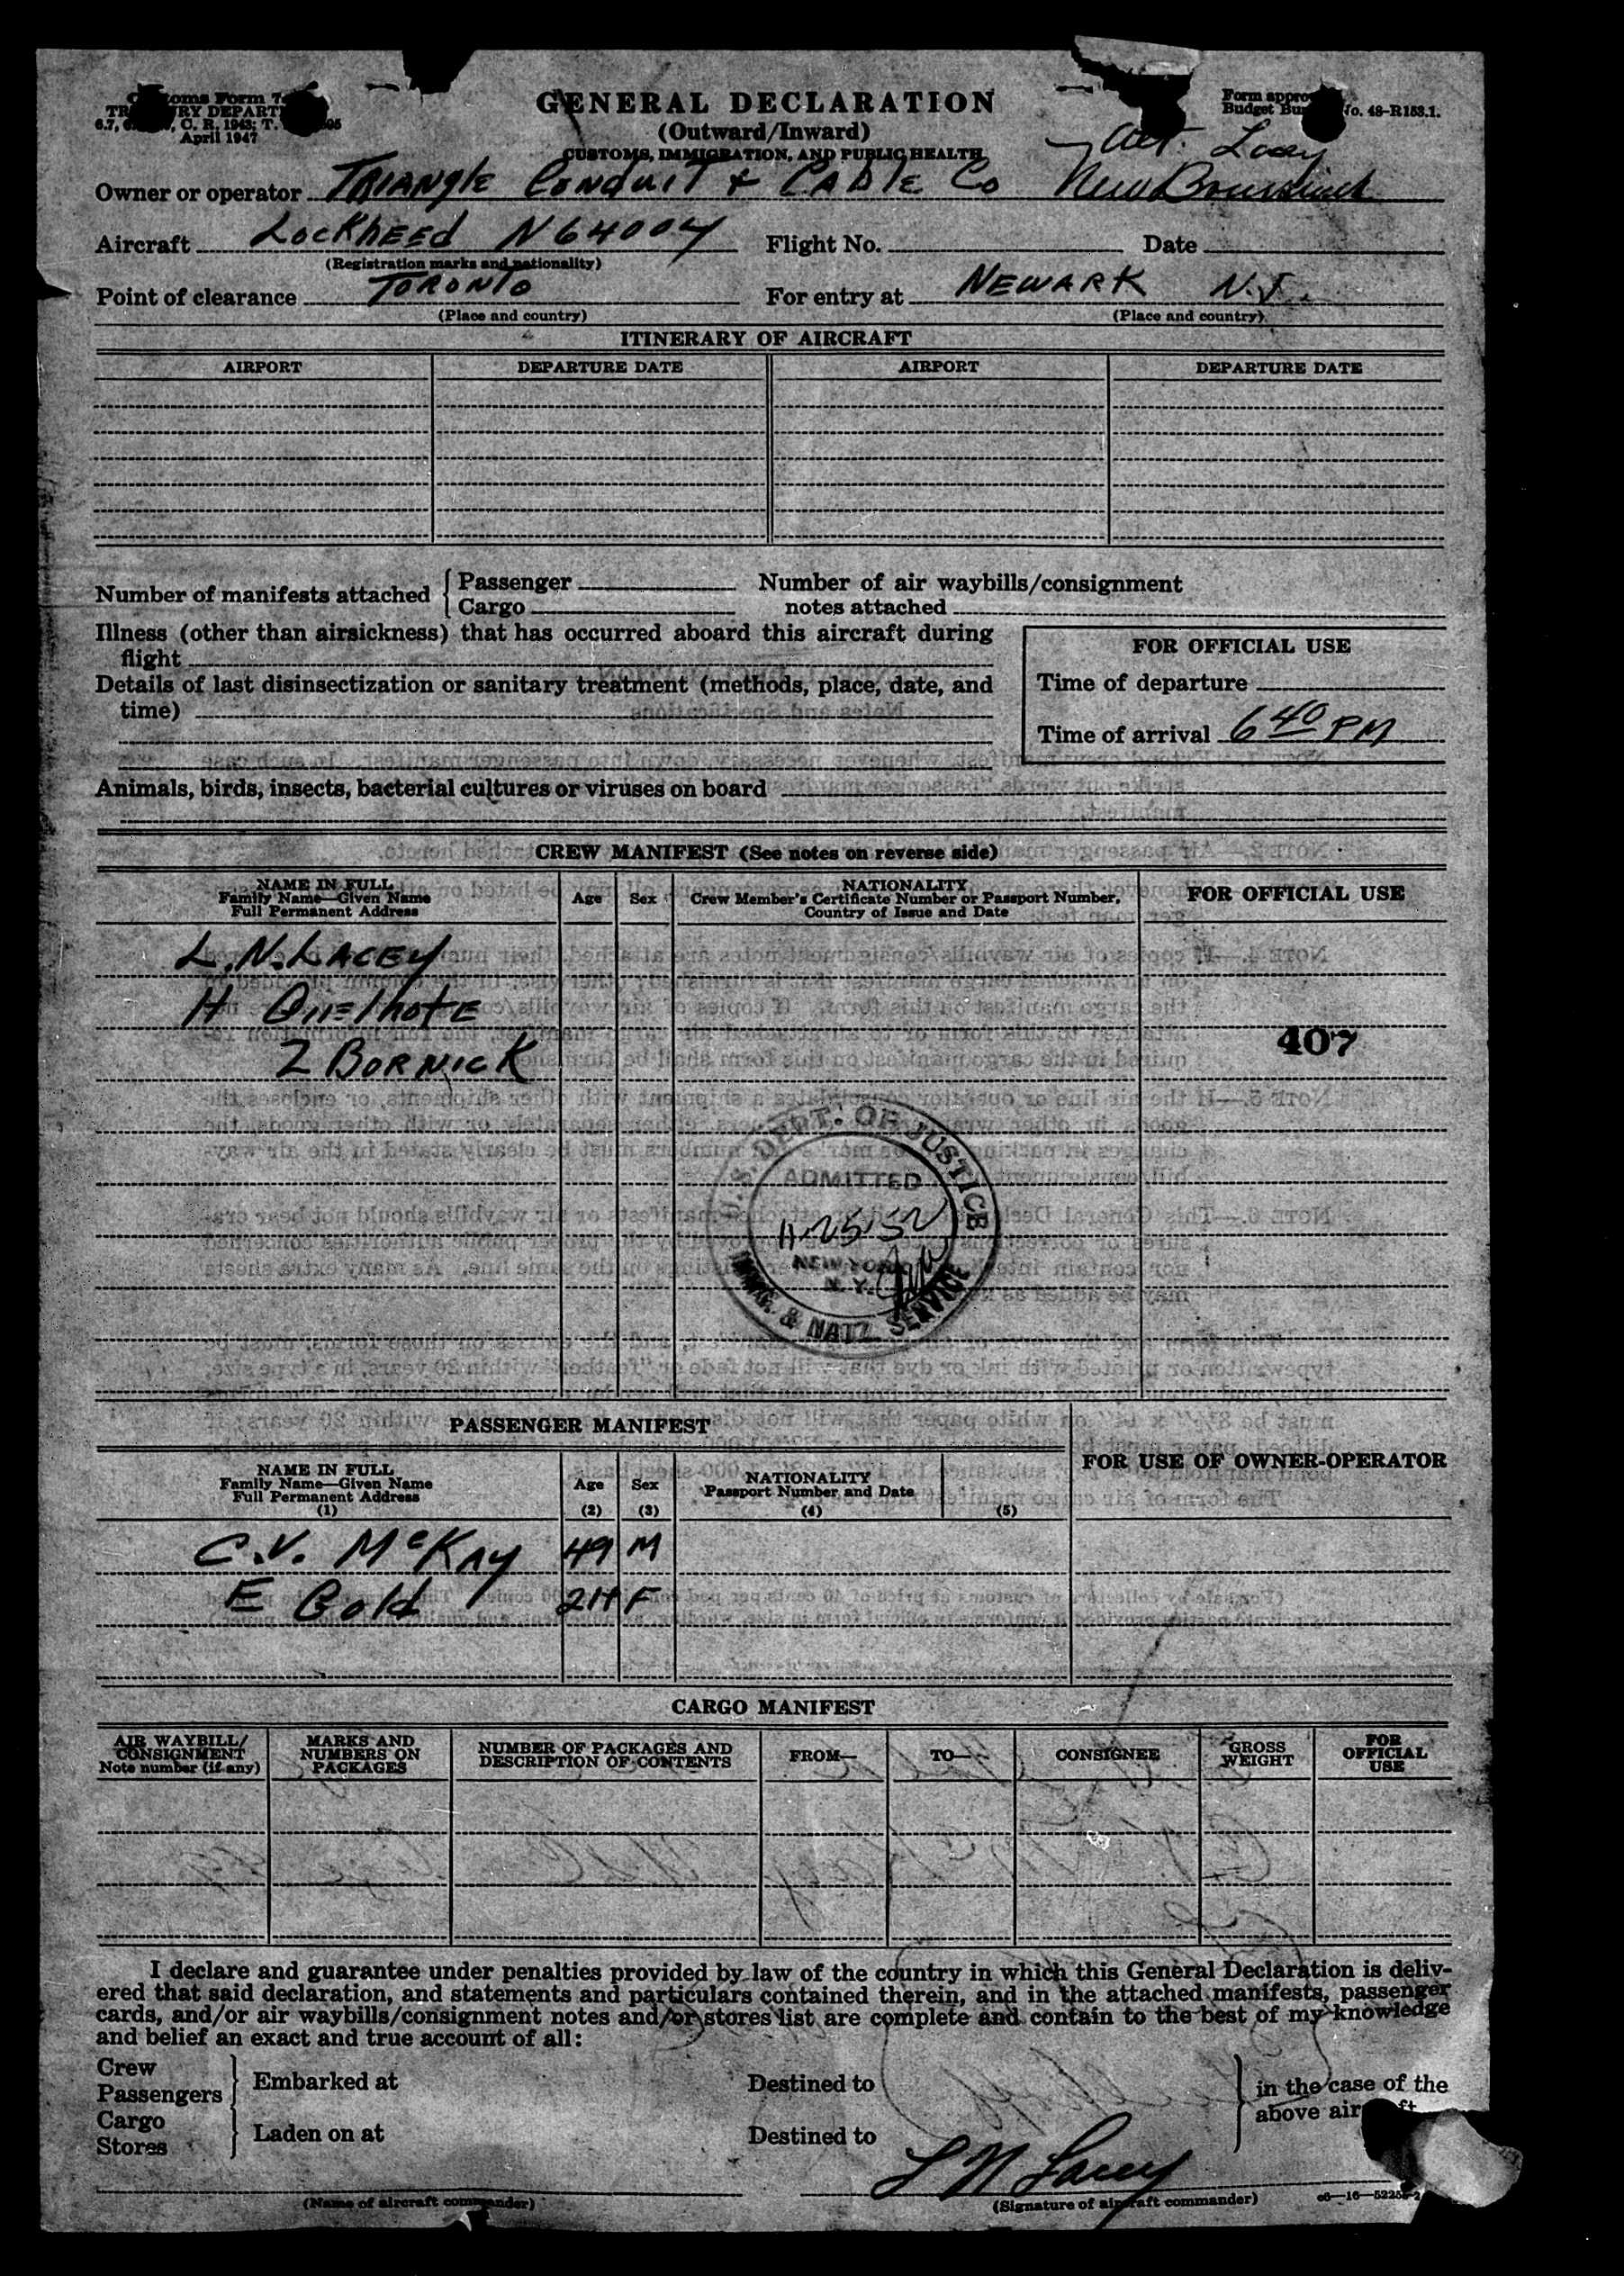 Customs Form 7
TREASURY DEPART
6.7, C. R. 1943; T.
April 1947
Form approved
Budget Bureau No. 48-R153.1.
GENERAL DECLARATION
(Outward/Inward)
CUSTOMS, IMMIGRATION, AND PUBLIC HEALTH
Att. Lacey
Owner or operator TRIANGLE CONDUIT & CABLE Co New Brunswick
Aircraft LOCKHEED N64004 Flight No. Date
(Registration marks and nationality)
Point of clearance TORONTO For entry at NEWARK N.J.
(Place and country) (Place and country)
ITINERARY OF AIRCRAFT
AIRPORT DEPARTURE DATE AIRPORT DEPARTURE DATE
Number of manifests attached { Passenger
Cargo
Number of air waybills/consignment
notes attached
Illness (other than airsickness) that has occurred aboard this aircraft during
flight
Details of last disinsectization or sanitary treatment (methods, place, date, and
time)
FOR OFFICIAL USE
Time of departure
Time of arrival 6 40 PM
Animals, birds, insects, bacterial cultures or viruses on board
CREW MANIFEST (See notes on reverse side)
NAME IN FULL
Family Name—Given Name
Full Permanent Address
Age
Sex
NATIONALITY
Crew Member's Certificate Number or Passport Number,
Country of Issue and Date
FOR OFFICIAL USE
L.N. LACEY
H
Z BORNICK
407
U.S. DEPT. OF JUSTICE
ADMITTED
11-25-52
NEW YORK
N.Y.
IMMIG. & NATZ. SERVICE
PASSENGER MANIFEST
NAME IN FULL
Family Name—Given Name
Full Permanent Address
(1)
Age
(2)
Sex
(3)
NATIONALITY
Passport Number and Date
(4) (5)
FOR USE OF OWNER-OPERATOR
C.V. McKAY 49 M
E Gold 24 F
CARGO MANIFEST
AIR WAYBILL/
CONSIGNMENT
Note number (if any)
MARKS AND
NUMBERS ON
PACKAGES
NUMBER OF PACKAGES AND
DESCRIPTION OF CONTENTS
FROM—
TO—
CONSIGNEE
GROSS
WEIGHT
FOR
OFFICIAL
USE
I declare and guarantee under penalties provided by law of the country in which this General Declaration is deliv-
ered that said declaration, and statements and particulars contained therein, and in the attached manifests, passenger
cards, and/or air waybills/consignment notes and/or stores list are complete and contain to the best of my knowledge
and belief an exact and true account of all:
Crew
Passengers
Embarked at Destined to
Cargo
Stores
Laden on at Destined to
in the case of the
above aircraft
L N Lacey
(Name of aircraft commander) (Signature of aircraft commander)